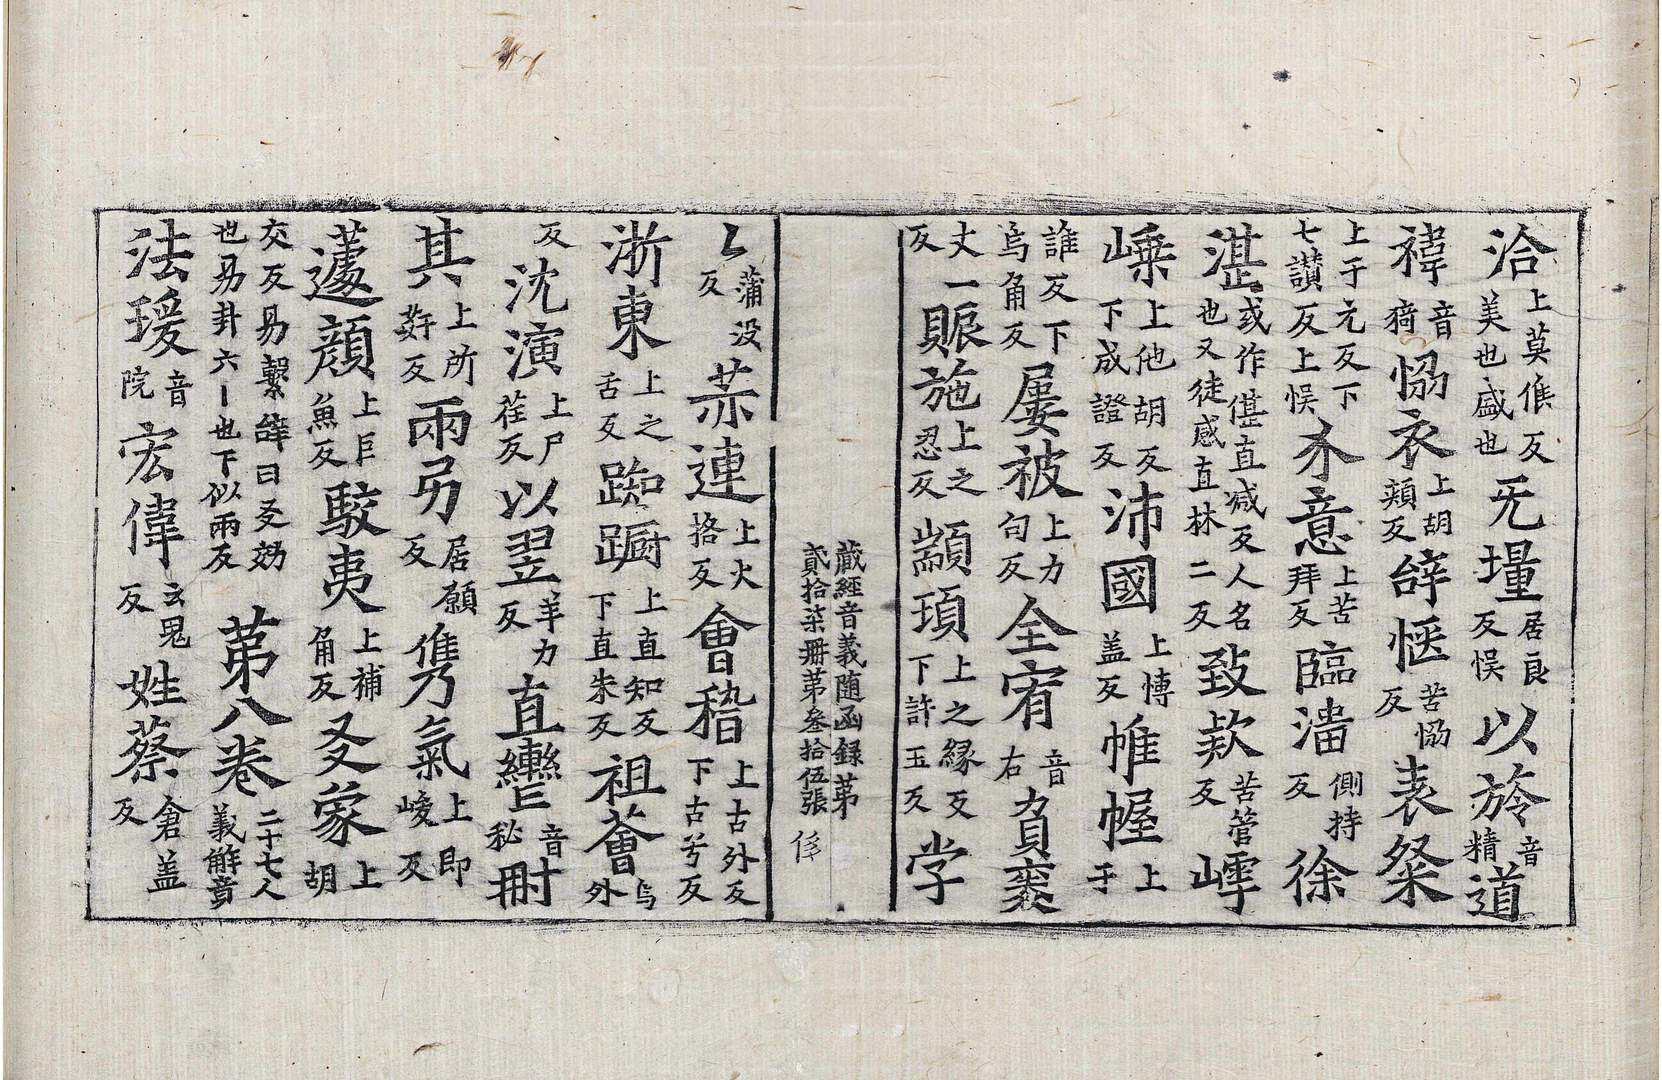 洽上莫俻反美也盛也旡壃居良反悮以於音精道
褘音猗惱衣上胡頬反辝㥦苦惱反表粲
上于元反下七讃反上悮㣺意上苦拜反臨淄側持反徐
湛或作偡直减反人名也又徒感直林二反致欵苦管反嶂
嵊上他胡反下成證反沛國上愽盖反帷幄上于
誰反下烏角反屢被上力句反全宥音右負袠
丈一反賑施上之忍反顓頊上之縁反下許玉反学
藏經音義随函録第
貳拾柒冊第叄拾伍張 俆
蒲没反茶連上火挌反會稽上古外反下古兮反
浙東上之舌反踟蹰上直知反下直朱反祖薈烏外
反沈演上尸荏反以翌羊力反直轡音秘冊
其上所簳反兩𢎞居願反㑺氣上即峻反
蘧顔上巨魚反駮夷上補角反爻彖上胡
交反易繫辝曰爻効也易卦六丨也下似兩反第八卷二十七人義解音
法瑗音院宏偉云鬼反姓蔡倉盖反